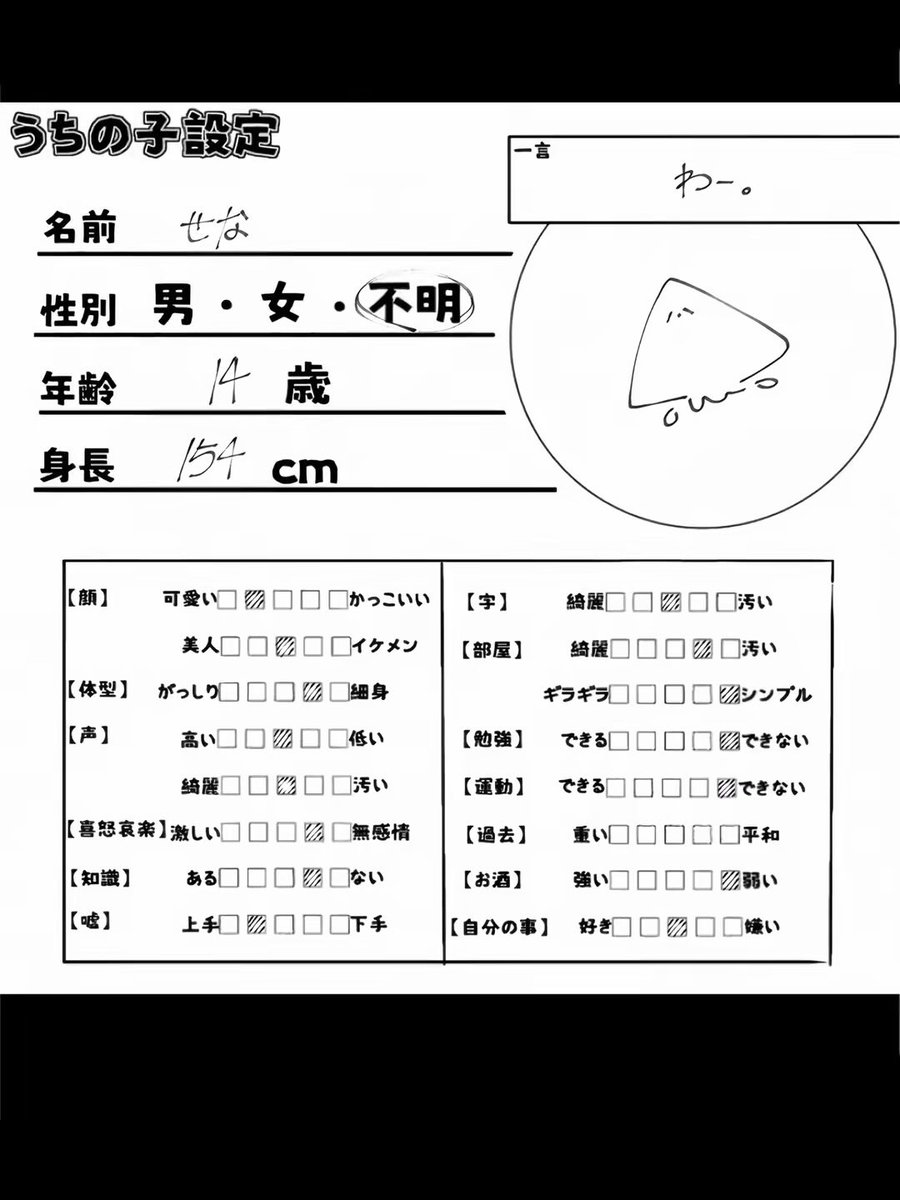 うちの子設定
一言
わー。
名前 せな
性別 男・女・不明
年齢 14 歳
身長 154 cm
【顔】 可愛い□▨□□□かっこいい
美人□□▨□□イケメン
【体型】 がっしり□□□▨□細身
【声】 高い□□▨□□低い
綺麗□□▨□□汚い
【喜怒哀楽】激しい□□□▨□無感情
【知識】 ある□□□▨□ない
【嘘】 上手□▨□□□下手
【字】 綺麗□□▨□□汚い
【部屋】 綺麗□□□▨□汚い
ギラギラ□□□□▨シンプル
【勉強】 できる□□□□▨できない
【運動】 できる□□□□▨できない
【過去】 重い□□□□□平和
【お酒】 強い□□□□▨弱い
【自分の事】 好き□□▨□□嫌い